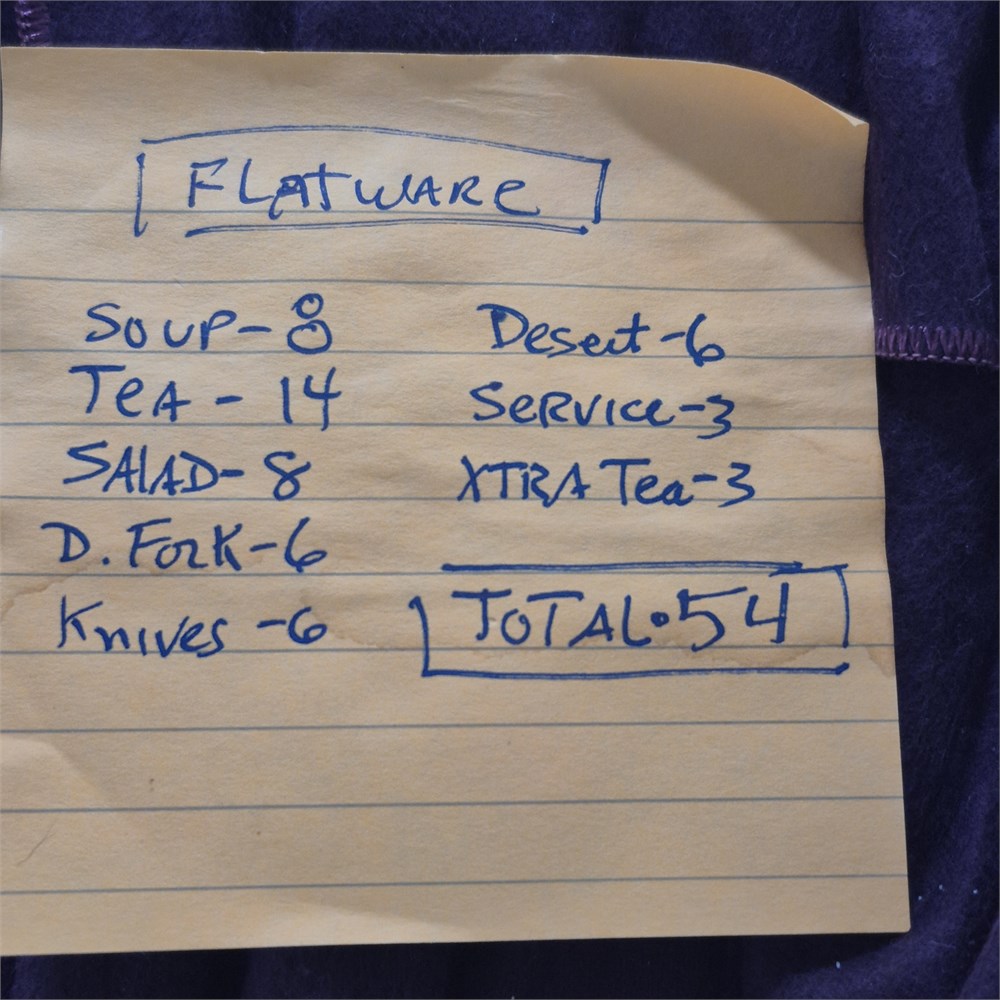 FLATWARE
Soup-8
Tea-14
Salad-8
D. Fork-6
Knives-6
Desert-6
Service-3
XTRA Tea-3
TOTAL·54